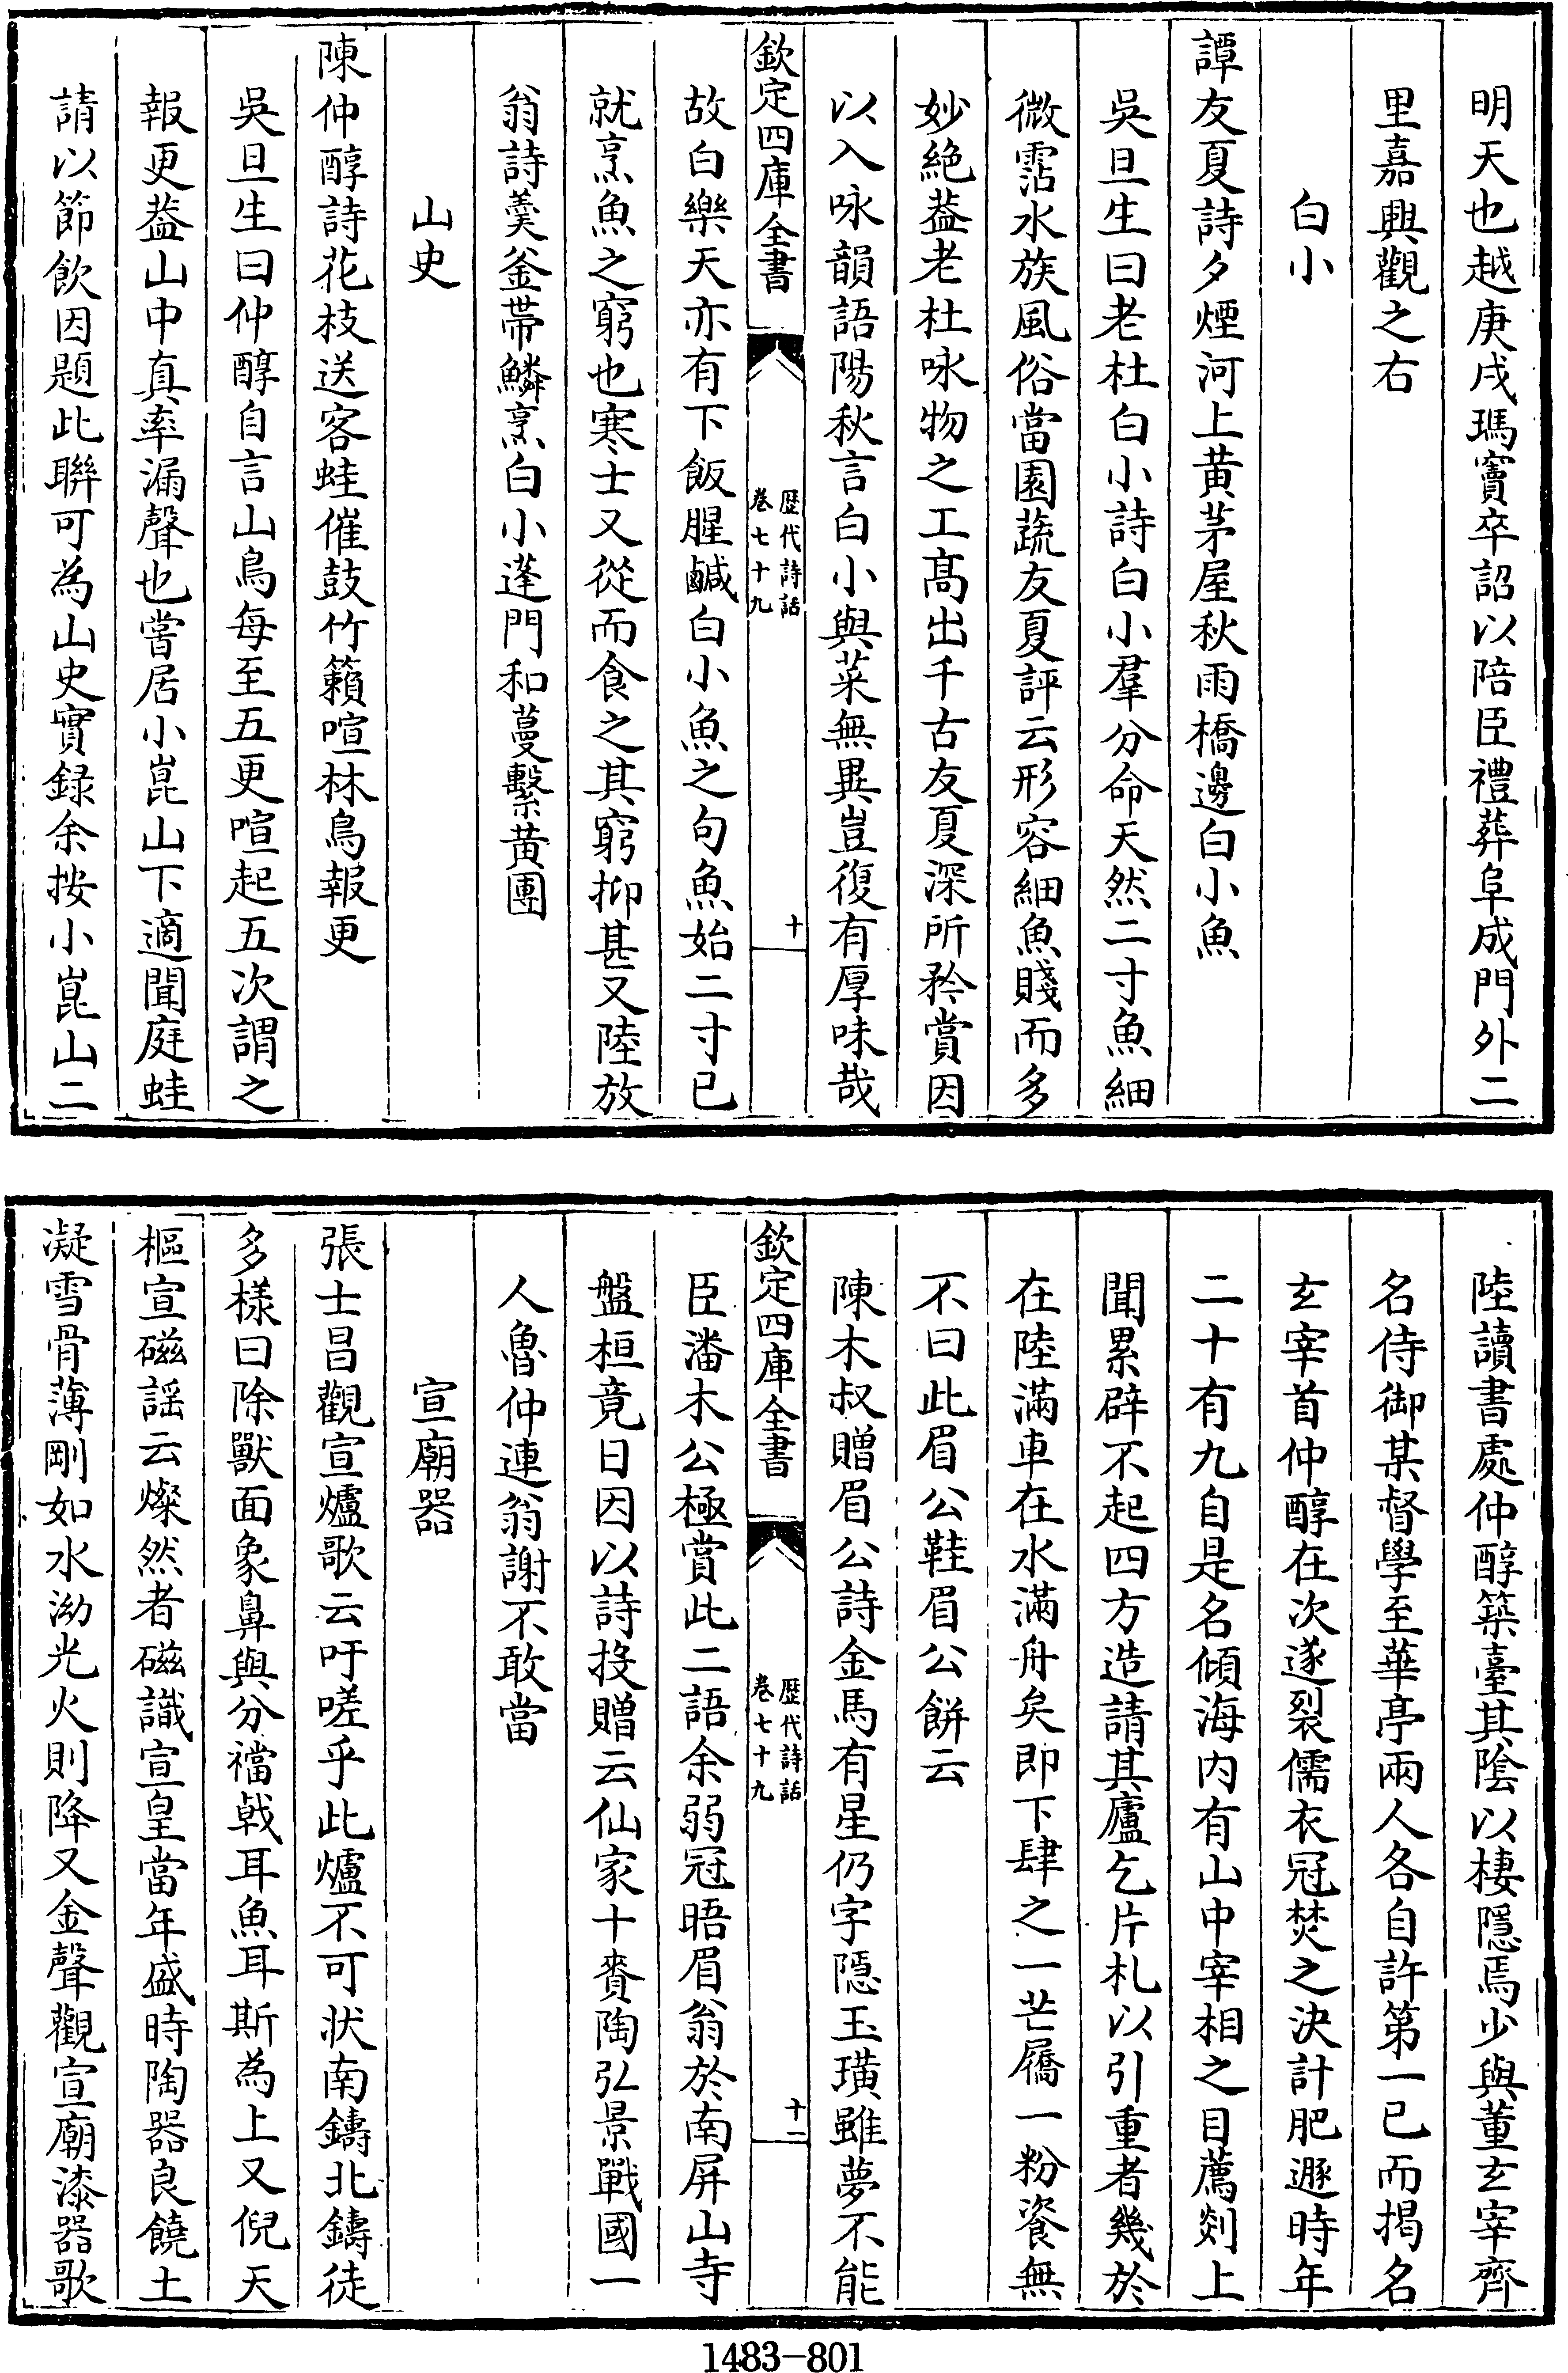 明天也越庚戌瑪竇卒詔以陪臣禮葬阜成門外二
里嘉興觀之右
白小
譚友夏詩夕煙河上黄茅屋秋雨橋邊白小魚
吳旦生曰老杜白小詩白小羣分命天然二寸魚細
微霑水族風俗當園蔬友夏評云形容細魚賤而多
妙絶葢老杜咏物之工髙出千古友夏深所矜賞因
以入咏韻語陽秋言白小與菜無異豈復有厚味哉
欽定四庫全書
歴代詩話
卷七十九
十
故白樂天亦有下飯腥鹹白小魚之句魚始二寸已
就烹魚之窮也寒士又從而食之其窮抑甚又陸放
翁詩羹釜帶鱗烹白小蓬門和蔓繫黄團
山史
陳仲醇詩花枝送客蛙催鼓竹籟喧林鳥報更
吳旦生曰仲醇自言山鳥每至五更喧起五次謂之
報更葢山中真率漏聲也嘗居小崑山下適聞庭蛙
請以節飲因題此聯可為山史實録余按小崑山二
陸讀書處仲醇築臺其隂以棲隱焉少與董玄宰齊
名侍御某督學至華亭兩人各自許第一已而揭名
玄宰首仲醇在次遂裂儒衣冠焚之決計肥遯時年
二十有九自是名傾海内有山中宰相之目薦剡上
聞累辟不起四方造請其廬乞片札以引重者幾於
在陸滿車在水滿舟矣即下肆之一芒屩一粉餈無
不曰此眉公鞋眉公餅云
陳木叔贈眉公詩金馬有星仍字隱玉璜雖夢不能
欽定四庫全書
歴代詩話
卷七十九
十一
臣潘木公極賞此二語余弱冠晤眉翁於南屏山寺
盤桓竟日因以詩投贈云仙家十賚陶弘景戰國一
人魯仲連翁謝不敢當
宣廟器
張士昌觀宣爐歌云吁嗟乎此爐不可狀南鑄北鑄徒
多樣曰除獸面象鼻與分襠戟耳魚耳斯為上又倪天
樞宣磁謡云燦然者磁識宣皇當年盛時陶器良饒土
凝雪骨薄剛如水泑光火則降又金聲觀宣廟漆器歌
1483-801